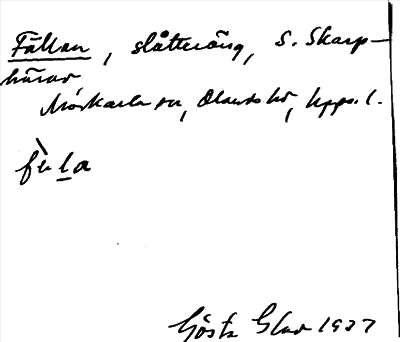 Fällan, slåtteräng, S. Skarp-
härar
Morkarla sn, Olands hd, Upps. l.
fèla
Gösta Glad 1937